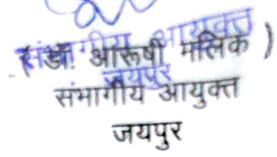 संभागीय आयुक्त
जयपुर
( डॉ. आरूषी मलिक )
संभागीय आयुक्त
जयपुर